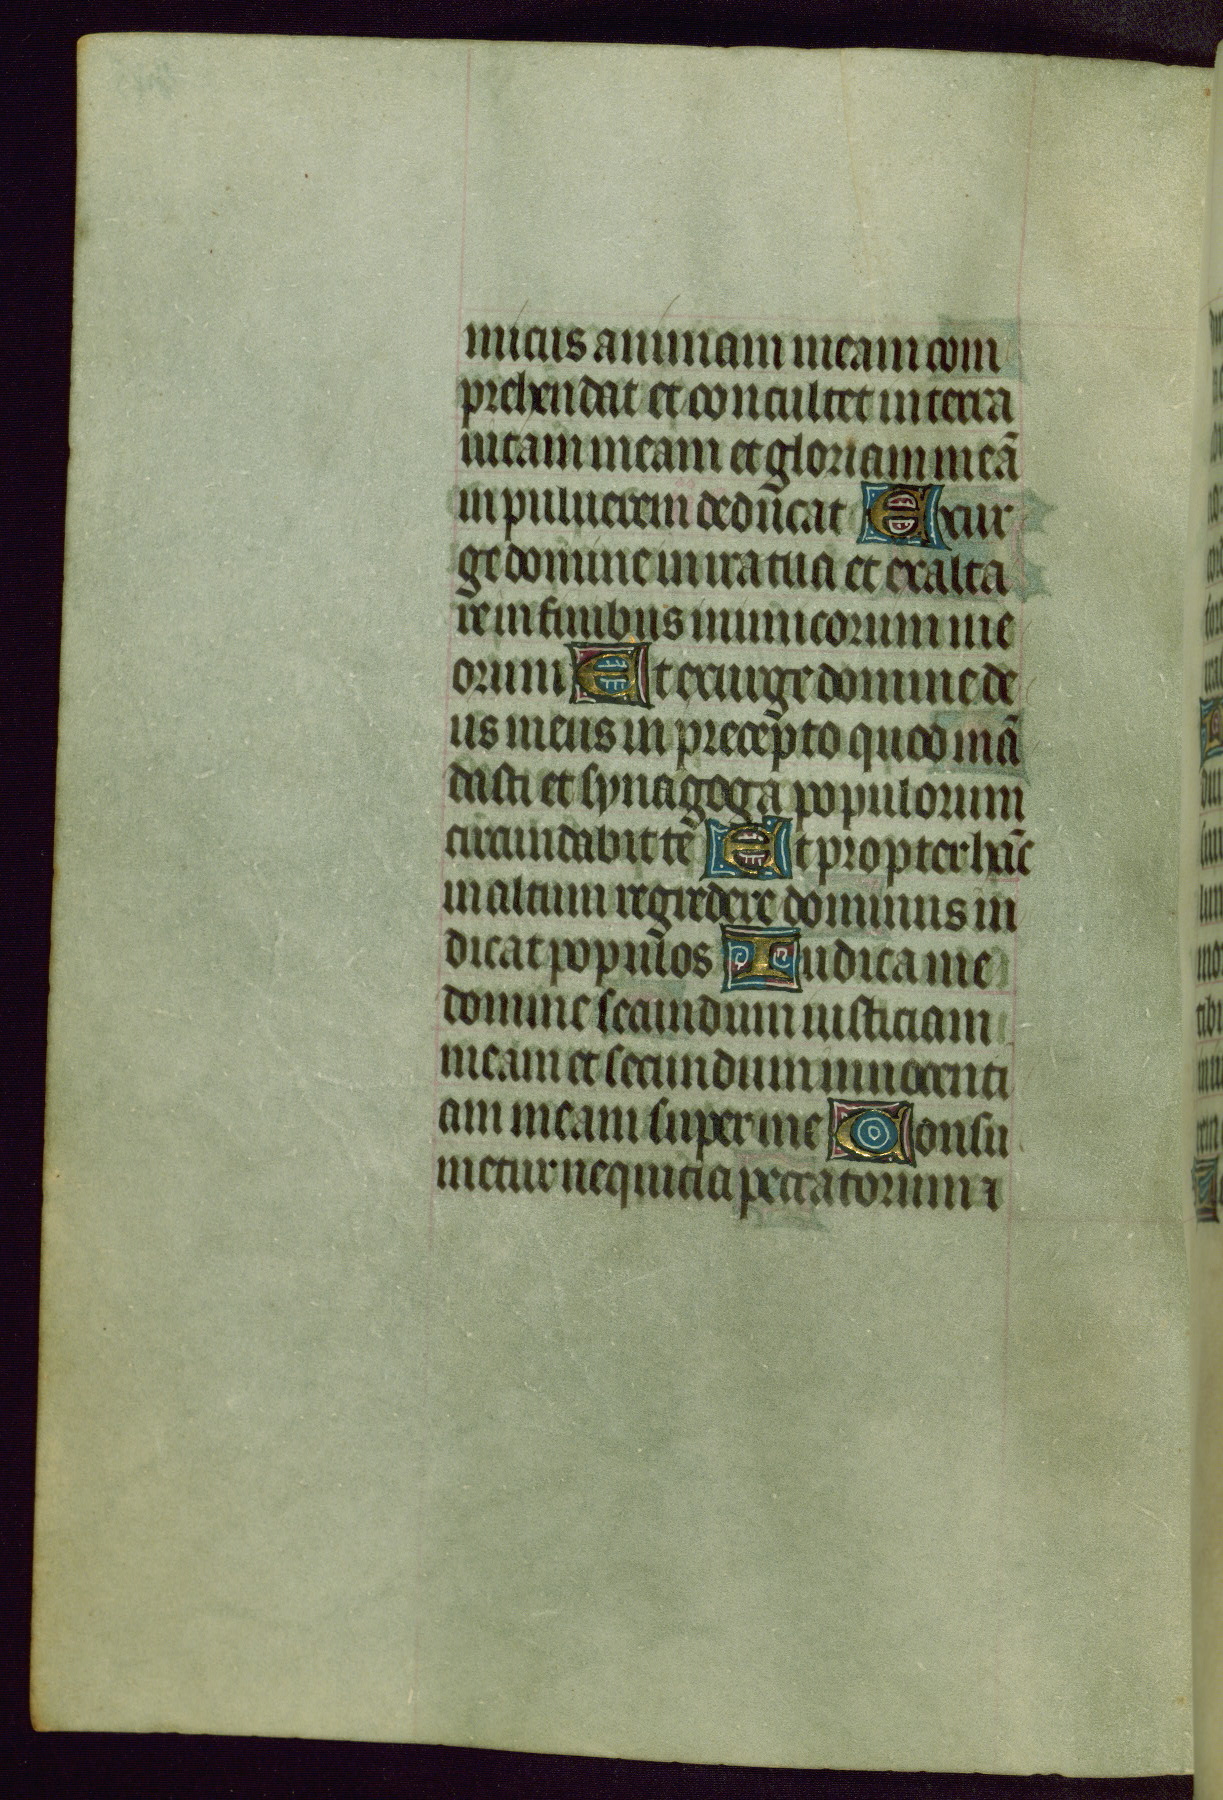 micus animam meam com
prehendat et conculcet in terra
uitam meam et gloriam meā
in puluerem deducat Exur
ge domine in ira tua et exalta
re in finibus inimicorum me
orum Et exurge domine de
us meus in precepto quod mā
dasti et synagoga populorum
circundabit te Et propter hāc
in altum regredere dominus iu
dicat populos Iudica me
domine secundum iusticiam
meam et secundum innocenti
am meam super me Consu
metur nequicia peccatorum ⁊